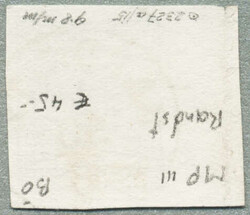 MP III BO
Randst
€ 45,-
2327a/15 g.e m/m